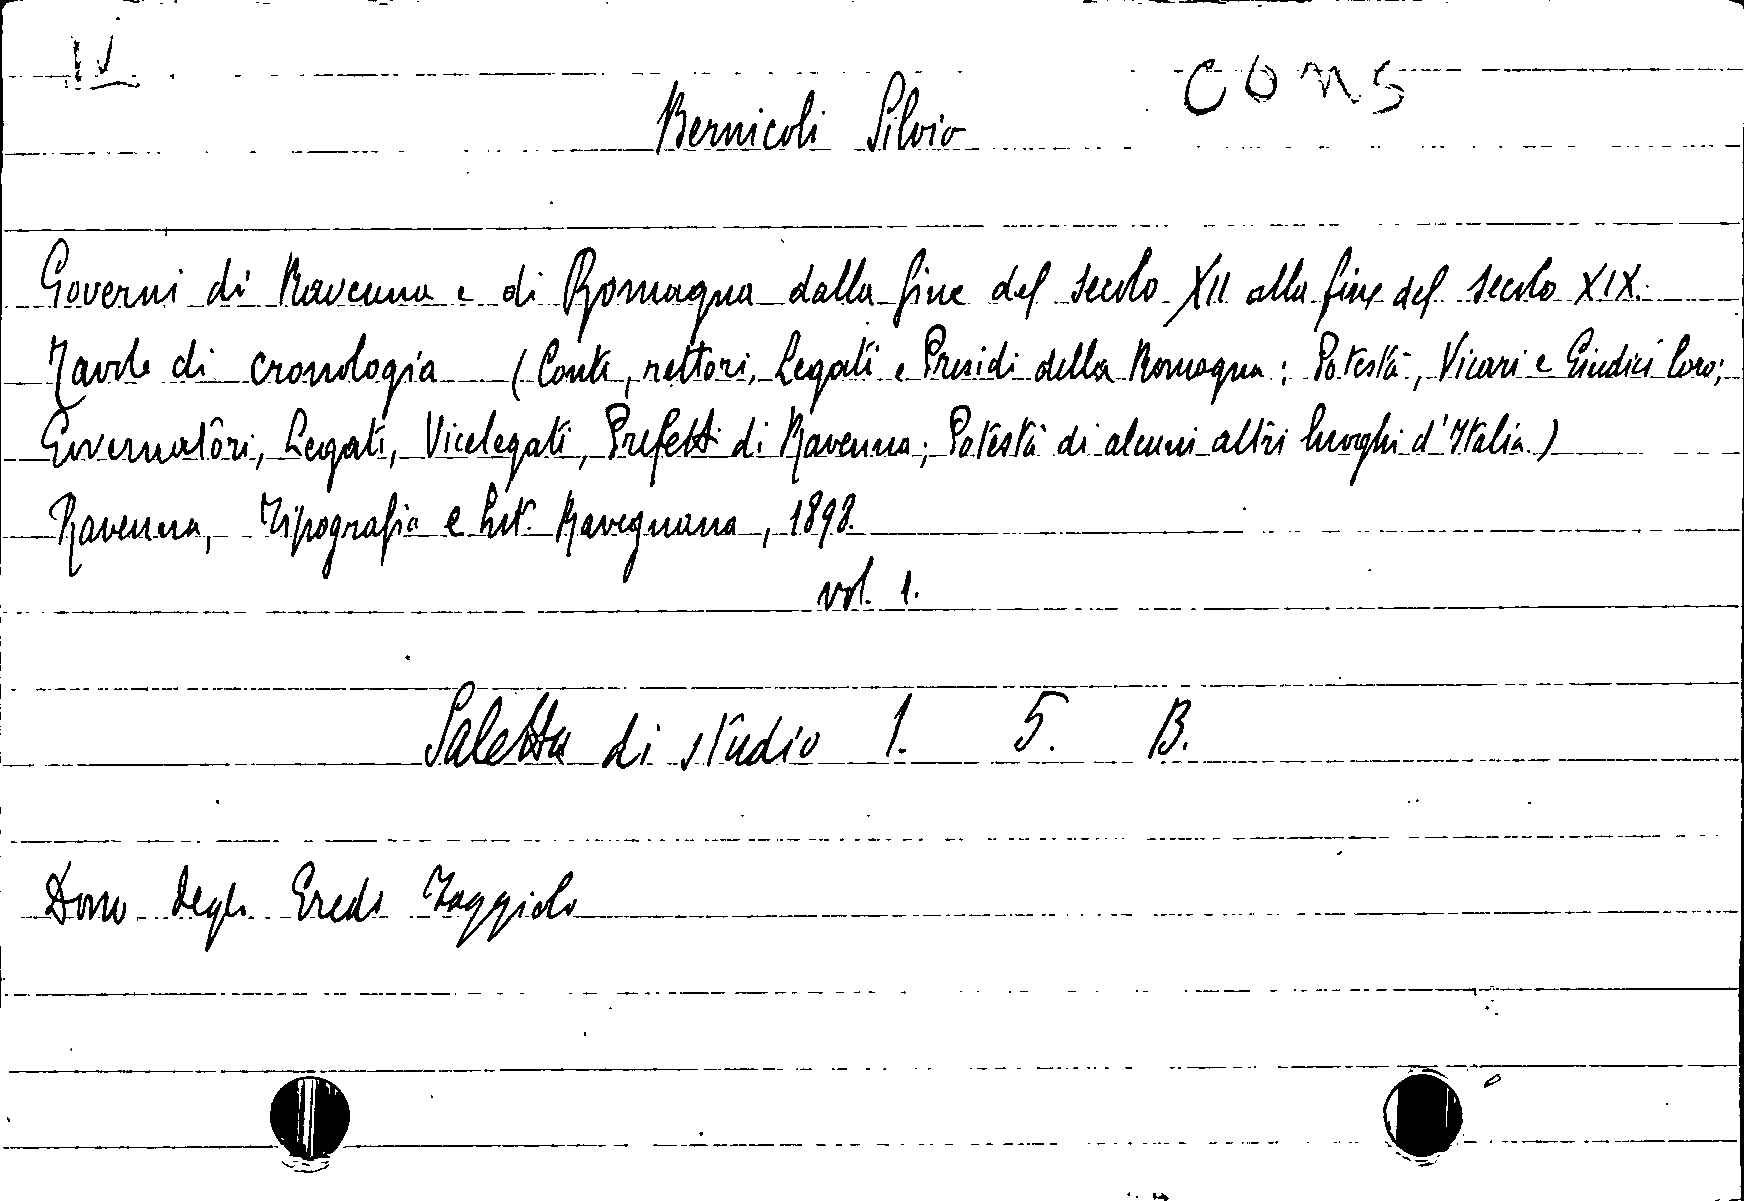 IV
CONS
Bernicoli Silvio
Governi di Ravenna e di Romagna dalla fine del secolo XII alla fine del secolo XIX.
Tavole di cronologia (Conti, rettori, Legati e Presidi della Romagna; Potestà, Vicari e Giudici loro;
Governatori, Legati, Vicelegati, Prefetti di Ravenna; Potestà di alcuni altri luoghi d'Italia.)
Ravenna, Tipografia e Lit. Ravegnana, 1898.
vol. 1.
Saletta di studio 1. 5. B.
Dono degli Eredi Zoggiolo